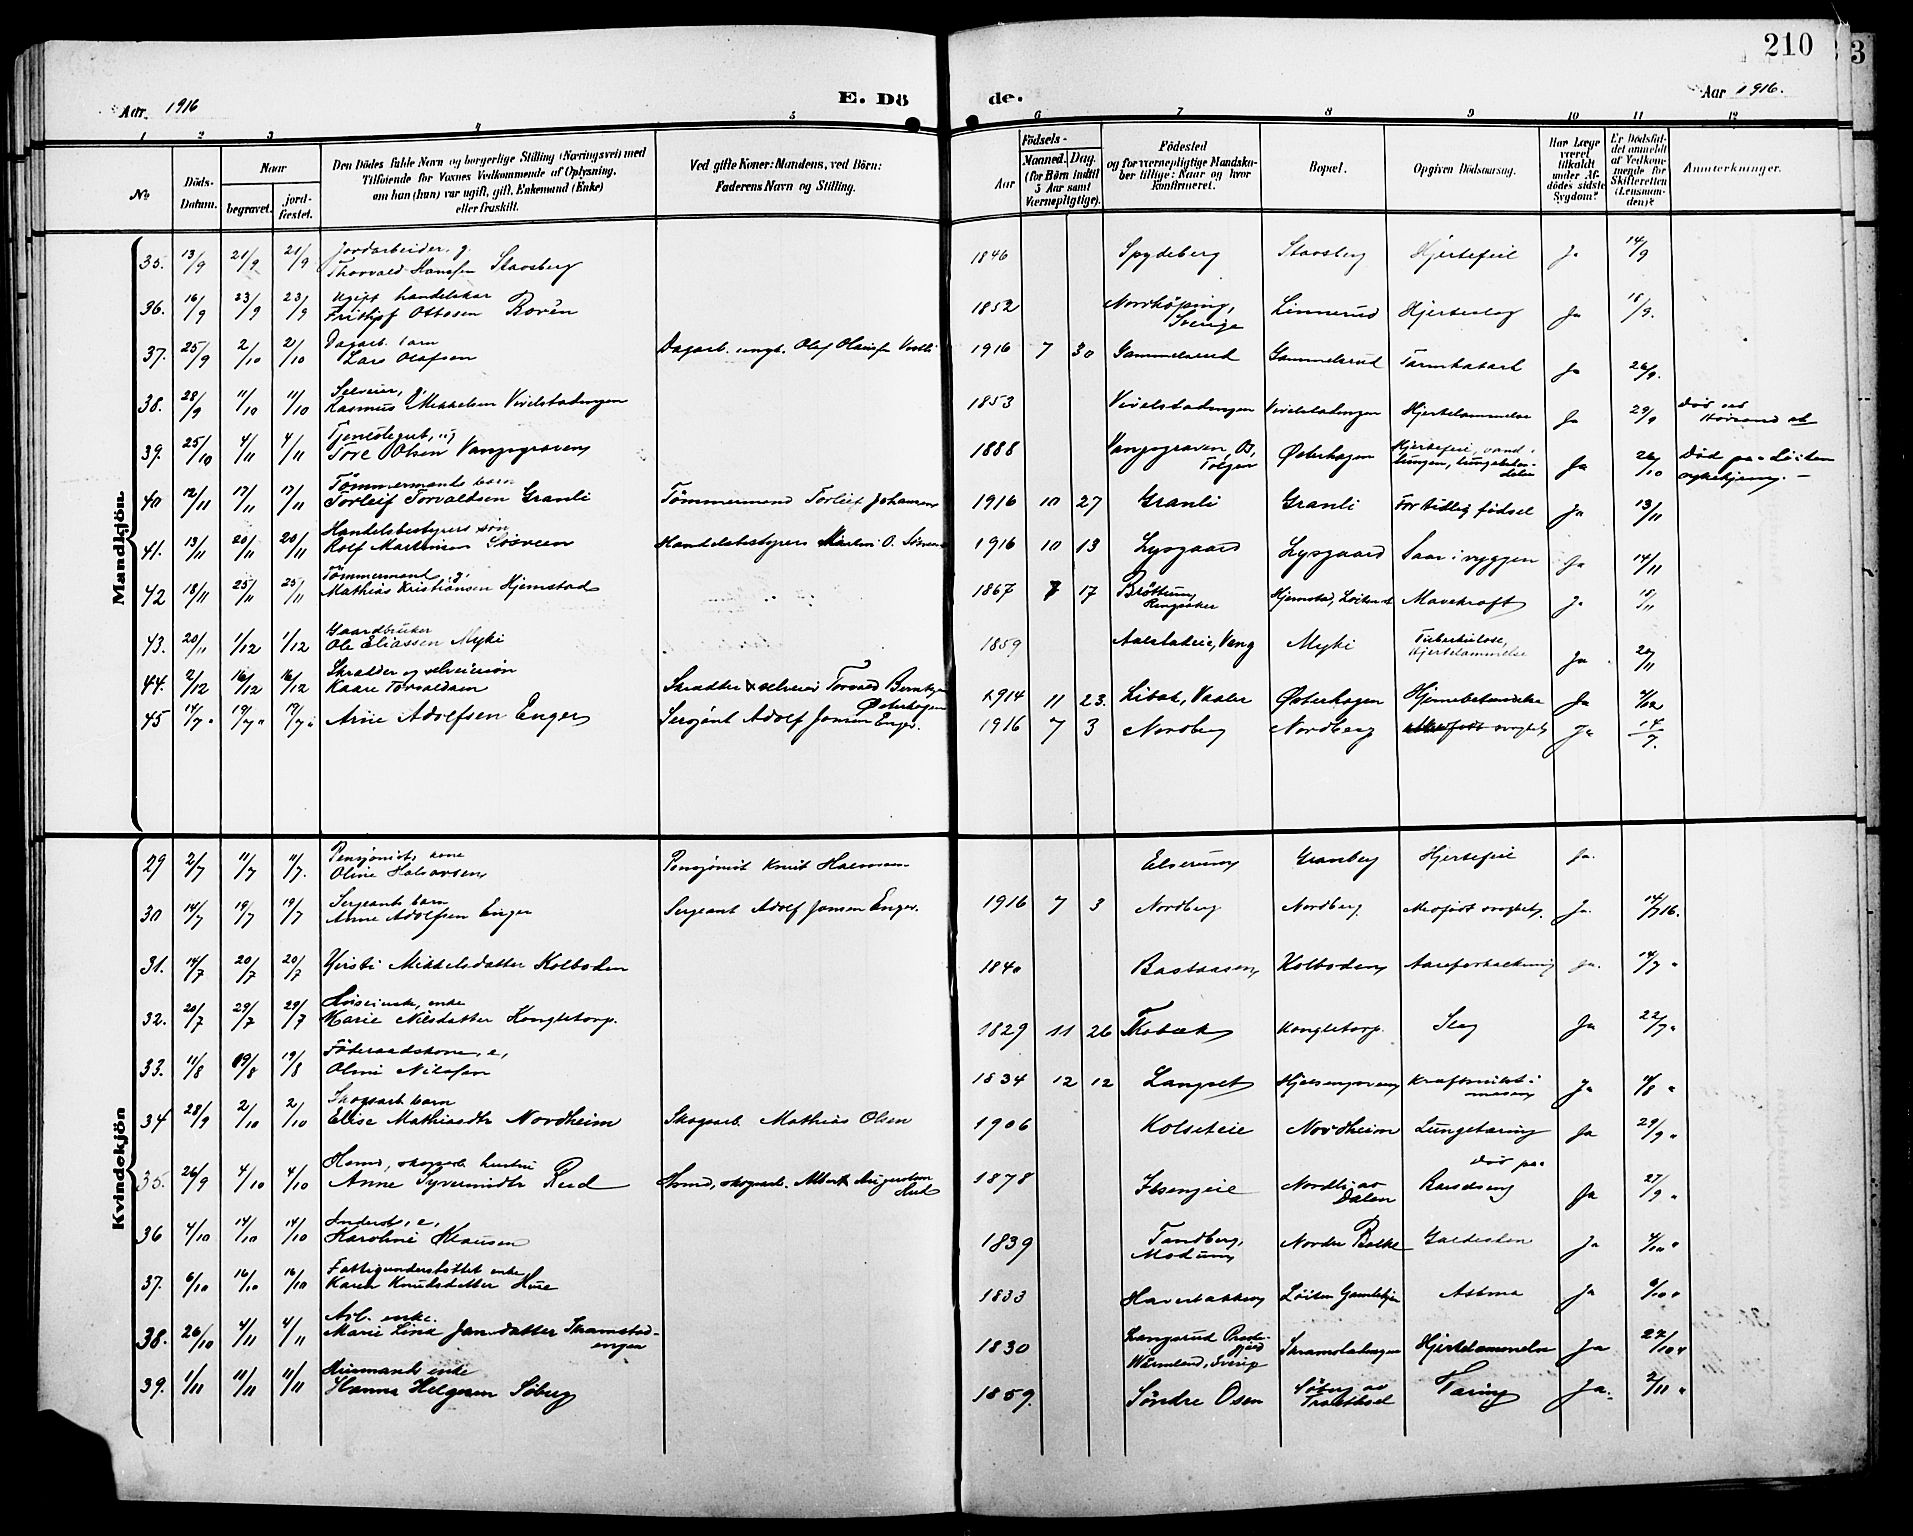 210
3
Aar. 1916
E. Dö
de.
Aar 1916.
1 2 3 4 5 6 7 8 9 10 11 12
No.
Döds-Datum.
Naar
begravet.
jord-fæstet.
Den Dödes fulde Navn og borgerlige Stilling (Næringsvei) med
Tilföiende for Voxnes Vedkommende af Oplysning,
om han (hun) var ugift, gift, Enkemand (Enke)
eller fraskilt.
Ved gifte Koner: Mandens, ved Börn:
Faderens Navn og Stilling.
Födsels-
Aar
Maaned. Dag.
(for Börn indtil
5 Aar samt
Værnepligtige).
Födested
og for værnepligtige Mandska-
ber tillige: Naar og hvor
konfirmeret.
Bopæl.
Opgiven Dödsaarsag.
Har Læge
været
tilkaldt
under Af-
dödes sidste
Sygdom?
Er Dödsfal-
det anmeldt
af Vedkom-
mende for
Skifteretten
(Lensman-
den)?
Anmærkninger.
Mandkjön
35. 13/9 21/9 21/9 Jordarbeider, g.
Thorvald Hansen Stavsberg 1846 Spydeberg Stavsberg Hjertefeil Ja 14/9
36. 16/9 23/9 23/9 Ugift handelskar
Fritjof Ottosen Rovén 1852 Nordköping,
Sverige Linnerud Hjerteslag Ja 18/9.
37. 25/9 2/10 2/10 Dagarb. barn
Lars Olafsen Dagarb. ungk. Olaf 1916 7 30 Gammelsrud Gammelsrud Tarmkatarh Ja 26/9.
38. 28/9 11/10 11/10 Selveier,
Rasmus Mikkelsen Vivelstadengen 1853 Vivelstadengen Vivelstadengen Hjertelammelse Ja 29/9
39. 25/10 4/11 4/11 Tjenestegut, ug
Tore Olsen Vangsgraven 1888 Vangsgraven, Ö.
Tolgen Østerhagen Hjertefeil, vand i
lungen, Ja 26/10 Död paa Löiten
sykehjem. —
40 12/11 17/11 17/11 Tömmermands barn
Torleif Torvaldsen Granli Tömmermand Torleif Johansen 1916 10 27 Granli Granli For tidlig födsel Ja 13/11
41. 13/11 20/11 20/11 Handelsbestyrers sön
Rolf Martinsen Sösveen Handelsbestyrer Martin O. Sösveen 1916 10 13 Lysgaard Lysgaard Saar i ryggen Ja 14/11
42 18/11 25/11 25/11 Tömmermand, g.
Mathias Kristiansen Hjemstad 1867 7 17 Bröttum,
Ringsaker Hjemstad, Löiten Mavekræft Ja 18/11
43. 20/11 1/12 1/12 Gaardbruker
Ole Eliassen Myki 1859 Aalstadeie, Vang Myki Tuberkulose,
Hjertelammelse Ja 20/11
44. 2/12 16/12 16/12 Skrædder og selveiersön
Kaare Torvaldsen Skrædder & selveier Torvald
Österhagen 1914 11 23. Libak, Vaaler Østerhagen Hjernebetændelse Ja
45 14/7 19/7 19/7 Arne Adolfsen Enger Sersjant Adolf Jansen Enger. 1916 7 3 Nordberg Nordberg svaghet Ja 14/7.
Kvindekjön
29 2/7 11/7 11/7. Pensjonists kone
Oline Halvorsen Pensjonist Knut 
Elverum Granberg Hjertefeil Ja.
30 14/7 19/7 19/7 Sergeants barn
Arne Adolfsen Enger Sergeant Adolf Jansen Enger. 1916 7 3 Nordberg Nordberg. Medfödt svaghet. Ja. 14/7 16.
31. 14/7 20/7 20/7 Kirsti Mikkelsdatter Kolboden 1840 Bastaasen Kolboden Aareforkalkning Ja. 14/7 "
32. 20/7 29/7 29/7 enke
Marie Nilsdatter Kongletorp. 1829 11 26 Kongletorp. Slag Ja 22/7 "
33. 11/8 19/8 19/8 Föderaadskone, e,
Oline Nilsen 1834 12 12 Langset Kræftsvulst i
maven Ja 11/8 "
34 28/9 2/10 2/10 Skogsarb. barn
Elise Mathiasdtr Nordheim Skogsarb. Mathias Olsen 1906 Kolseteie Nordheim Lungetæring Ja 29/9 "
35. 26/9 4/10 4/10 Hsmd, skogsarb. hustru
Anne Syvertsdtr Rud Hsmd, skogsarb. Albert Augustsen
Rud 1878 Ilsengeie Nordli av
Dalen Död paa
Barselseng Ja 27/9 "
36 4/10 14/10 14/10 Inderst, e,
Karoline Klausen 1839 Tandberg,
Modum Nordre Balke Galdesten Ja 4/10 "
37. 6/10 16/10 16/10 Fattigunderstöttet enke
Karen Knutsdatter Huse 1833 Haverbakken Löiten Gamlehjem Astma Ja 9/10 "
38. 26/10 4/11 4/11 Arb. enke.
Marie Lina Jansdatter Skramstad-
engen 1830 Langerud
Värmland, Sverige Skramstadengen Hjertelammelse Ja 27/10 "
39. 1/11 11/11 11/11 Husmands enke
Hanna Helgesen Söberg 1859. Söndre Osen Söberg av
Træthset Tæring Ja. 2/11 "